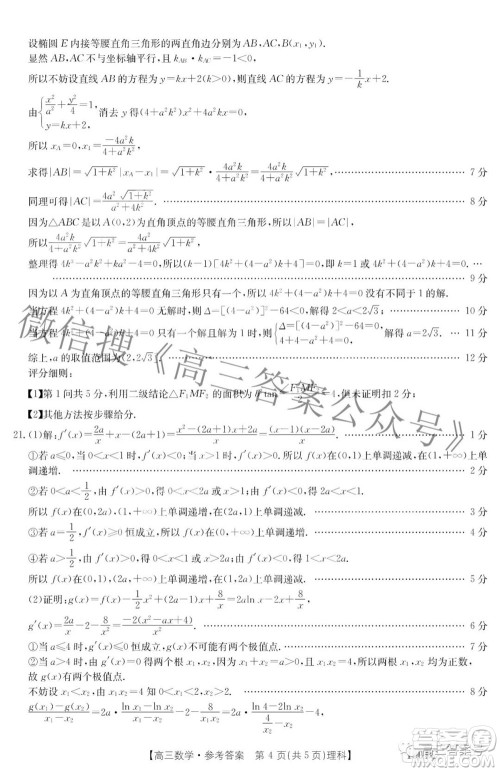 设椭圆 E 内接等腰直角三角形的两直角边分别为 AB,AC,B(x₁,y₁).
显然 AB,AC 不与坐标轴平行,且 k_AB·k_AC=-1<0,
所以不妨设直线 AB 的方程为 y=kx+2(k>0),则直线 AC 的方程为 y=-1/k x+2.
由{x²/a²+y²/4=1, y=kx+2, 消去 y 得(4+a²k²)x²+4a²kx=0,
所以 x_A=0,x₁=-4a²k/(4+a²k²),
求得|AB|=√(1+k²)|x_A-x₁|=√(1+k²)·4a²k/(4+a²k²)=4a²k/(4+a²k²)√(1+k²). 7 分
同理可得|AC|=4a²√(1+k²)/(a²+4k²). 8 分
因为△ABC 是以 A(0,2)为直角顶点的等腰直角三角形,所以|AB|=|AC|,
所以4a²k/(4+a²k²)√(1+k²)=
整理得 4k³-a²k²+ka²-4=0,所以(k-1)[4k²+(4-a²)k+4]=0,即 k=1 或 4k²+(4-a²)k+4=0.
9 分
因为以 A 为直角顶点的等腰直角三角形只有一个,所以
当方程 4k²+(4-a²)k+4=0 无解时,则 Δ=[4-a²]²-64<0, 10 分
只有一个解且解为 1 时,则 11 分
综上,a 的取值范围为(2,2√3]. 12 分
评分细则:
【1】第 1 问共 5 分,利用二级结论△F₁MF₂的面积为 =4,但未证明扣 2 分;
【2】其他方法按步骤给分.
21.(1)解:f′(x)=2a/x+x-(2a+1)=(x²-(2a+1)x+2a)/x=(x-1)(x-2a)/x. 1 分
①若 a≤0,当 0<x<1 时,f′(x)<0;当 x>1 时,f′(x)>0.所以 f(x)在(0,1)上单调递减,在(1,+∞)上单
调递增. 2 分
②若 0<a<1/2,由 f′(x)>0,得 0<x<2a 或 x>1;由 f′(x)<0,得 2a<x<1.
所以 f(x)在(0,2a),(1,+∞)上单调递增,在(2a,1)上单调递减. 3 分
③若 a=1/2,f′(x)≥0 恒成立,所以 f(x)在(0,+∞)上单调递增. 4 分
④若 a>1/2,由 f′(x)>0,得 0<x<1 或 x>2a;由 f′(x)<0,得 1<x<2a.
所以 f(x)在(0,1),(2a,+∞)上单调递增,在(1,2a)上单调递减. 5 分
(2)证明:g(x)=f(x)-1/2x²+(2a-1)x+8/x=2aln x-2x+8/x,
g′(x)=2a/x-2-8/x²=-2(x²-ax+4)/x². 6 分
①当 a≤4 时,g′(x)≤0 恒成立,g(x)不可能有两个极值点. 7 分
②当 a>4 时,由 g′(x)=0 得两个根 x₁,x₂,因为 x₁+x₂=a,x₁x₂=4,所以两根 x₁,x₂ 均为正数,
故 g(x)有两个极值点.
不妨设 x₁<x₂,由 x₁x₂=4 知 x₁<2,x₂>2, 8 分
(g(x₁)-g(x₂))/(x₁-x₂)=2a·(ln x₁-ln x₂)/(x₁-x₂)
【高三数学·参考答案 第 4 页(共 5 页)理科】
微信搜《高三答案公众号》